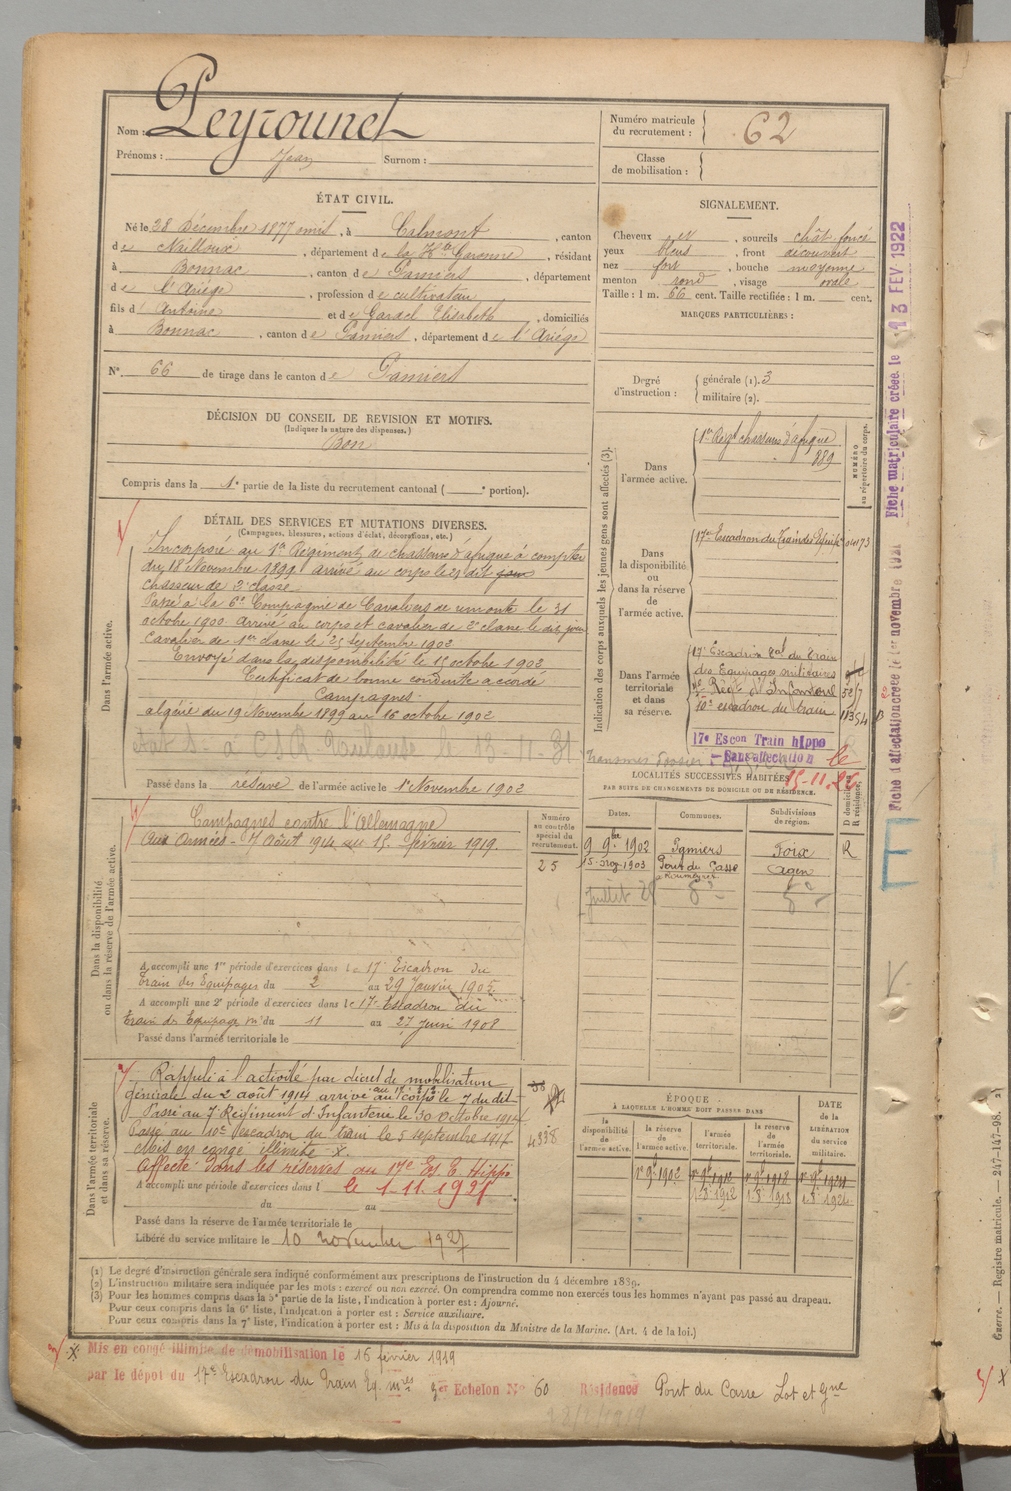 Nom : Peyrounet
Prénoms : Jean Surnom :
Numéro matricule du recrutement : 62
Classe de mobilisation :
ÉTAT CIVIL.
Né le 28 Décembre 1877 omis, à Calmont, canton
de Nailloux, département de la Hte Garonne, résidant
à Bonnac, canton de Pamiers, département
de l'Ariége, profession de cultivateur
fils d' Antoine et de Gardel Elisabeth, domiciliés
à Bonnac, canton de Pamiers, département de l'Ariége
N° 66 de tirage dans le canton de Pamiers
DÉCISION DU CONSEIL DE REVISION ET MOTIFS.
(Indiquer la nature des dispenses.)
Bon
Compris dans la 1e partie de la liste du recrutement cantonal ( e portion).
SIGNALEMENT.
Cheveux et, sourcils chât. foncé
yeux bleus, front découvert
nez fort, bouche moyenne
menton rond, visage ovale
Taille : 1 m. 66 cent. Taille rectifiée : 1 m. cent.
MARQUES PARTICULIÈRES :
Degré d'instruction : générale (1). 3
militaire (2).
DÉTAIL DES SERVICES ET MUTATIONS DIVERSES.
(Campagnes, blessures, actions d'éclat, décorations, etc.)
Dans l'armée active.
Incorporé au 1er Régiment de chasseurs d'afrique à compter
du 18 Novembre 1899 arrivé au corps le 21 dit
chasseur de 2e classe
Passé à la 6e Compagnie de Cavaliers de remonte le 31
octobre 1900 Arrivé au corps et cavalier de 2e classe le dit jour
Cavalier de 1ere classe le 25 Septembre 1902
Envoyé dans la disponibilité le 15 octobre 1902
Certificat de bonne conduite accordé
Campagnes
algérie du 19 Novembre 1899 au 16 octobre 1902
Passé dans la réserve de l'armée active le 1er Novembre 1902
Indication des corps auxquels les jeunes gens sont affectés (3).
NUMÉRO au répertoire du corps.
Dans l'armée active.
1er Regt chasseurs d'afrique
889
Dans la disponibilité ou dans la réserve de l'armée active.
17e Escadron du Train des Equip.
Dans l'armée territoriale et dans sa réserve.
17e Escadron Ral du train
des Equipages militaires
7e Régt d'Infanterie
10e escadron du train
11354
17e Escon Train hippo
Sans affectation
15-11-26
LOCALITÉS SUCCESSIVES HABITÉES
PAR SUITE DE CHANGEMENTS DE DOMICILE OU DE RÉSIDENCE.
Dates. Communes. Subdivisions de région. D domicile R résidence.
9 9bre 1902 Pamiers Foix R
1903 Pont du Casse Agen
Juillet 25
Dans la disponibilité ou dans la réserve de l'armée active.
Numéro au contrôle spécial du recrutement.
25
Campagnes contre l'Allemagne
Aux Armées - 7 Août 1914 au 15 Février 1919.
A accompli une 1re période d'exercices dans le 17e Escadron du
train des Equipages du 2 au 29 Janvier 1905
A accompli une 2e période d'exercices dans le 17e Escadron du
train des Equipages mres du 11 au 27 Juin 1908
Passé dans l'armée territoriale le
Dans l'armée territoriale et dans sa réserve.
Rappelé à l'activité par décret de mobilisation
générale du 2 août 1914 arrivé au corps le 7 du dit
Passé au 7e Régiment d'Infanterie le 30 Octobre 1914
Passé au 10e escadron du train le 5 septembre 1917
Mis en congé illimité X.
Affecté dans les réserves au 17e Es E. Hippo
A accompli une période d'exercices dans l le 1-11-1921
du au
Passé dans la réserve de l'armée territoriale le
Libéré du service militaire le 10 novembre 1927
4338
ÉPOQUE
À LAQUELLE L'HOMME DOIT PASSER DANS
la disponibilité de l'armée active. la réserve de l'armée active. l'armée territoriale. la réserve de l'armée territoriale. DATE de la LIBÉRATION du service militaire.
1er 9bre 1902 1er 9bre 1912 1er 9bre 1918 1er 9bre 1924
1-8-1912 1-8-1918 1-8-1924
(1) Le degré d'instruction générale sera indiqué conformément aux prescriptions de l'instruction du 4 décembre 1889.
(2) L'instruction militaire sera indiquée par les mots : exercé ou non exercé. On comprendra comme non exercés tous les hommes n'ayant pas passé au drapeau.
(3) Pour les hommes compris dans la 5e partie de la liste, l'indication à porter est : Ajourné.
Pour ceux compris dans la 6e liste, l'indication à porter est : Service auxiliaire.
Pour ceux compris dans la 7e liste, l'indication à porter est : Mis à la disposition du Ministre de la Marine. (Art. 4 de la loi.)
X Mis en congé illimité de démobilisation le 15 février 1919
par le dépot du 17e Escadron du Train Eq. mres 3er Echelon N° 60 Résidence Pont du Casse Lot et Gne
Fiche matriculaire créée le 13 FEV 1922
Fiche d'affectation créée le 1er novembre 1921
Guerre. — Registre matricule. — 247-147-98.